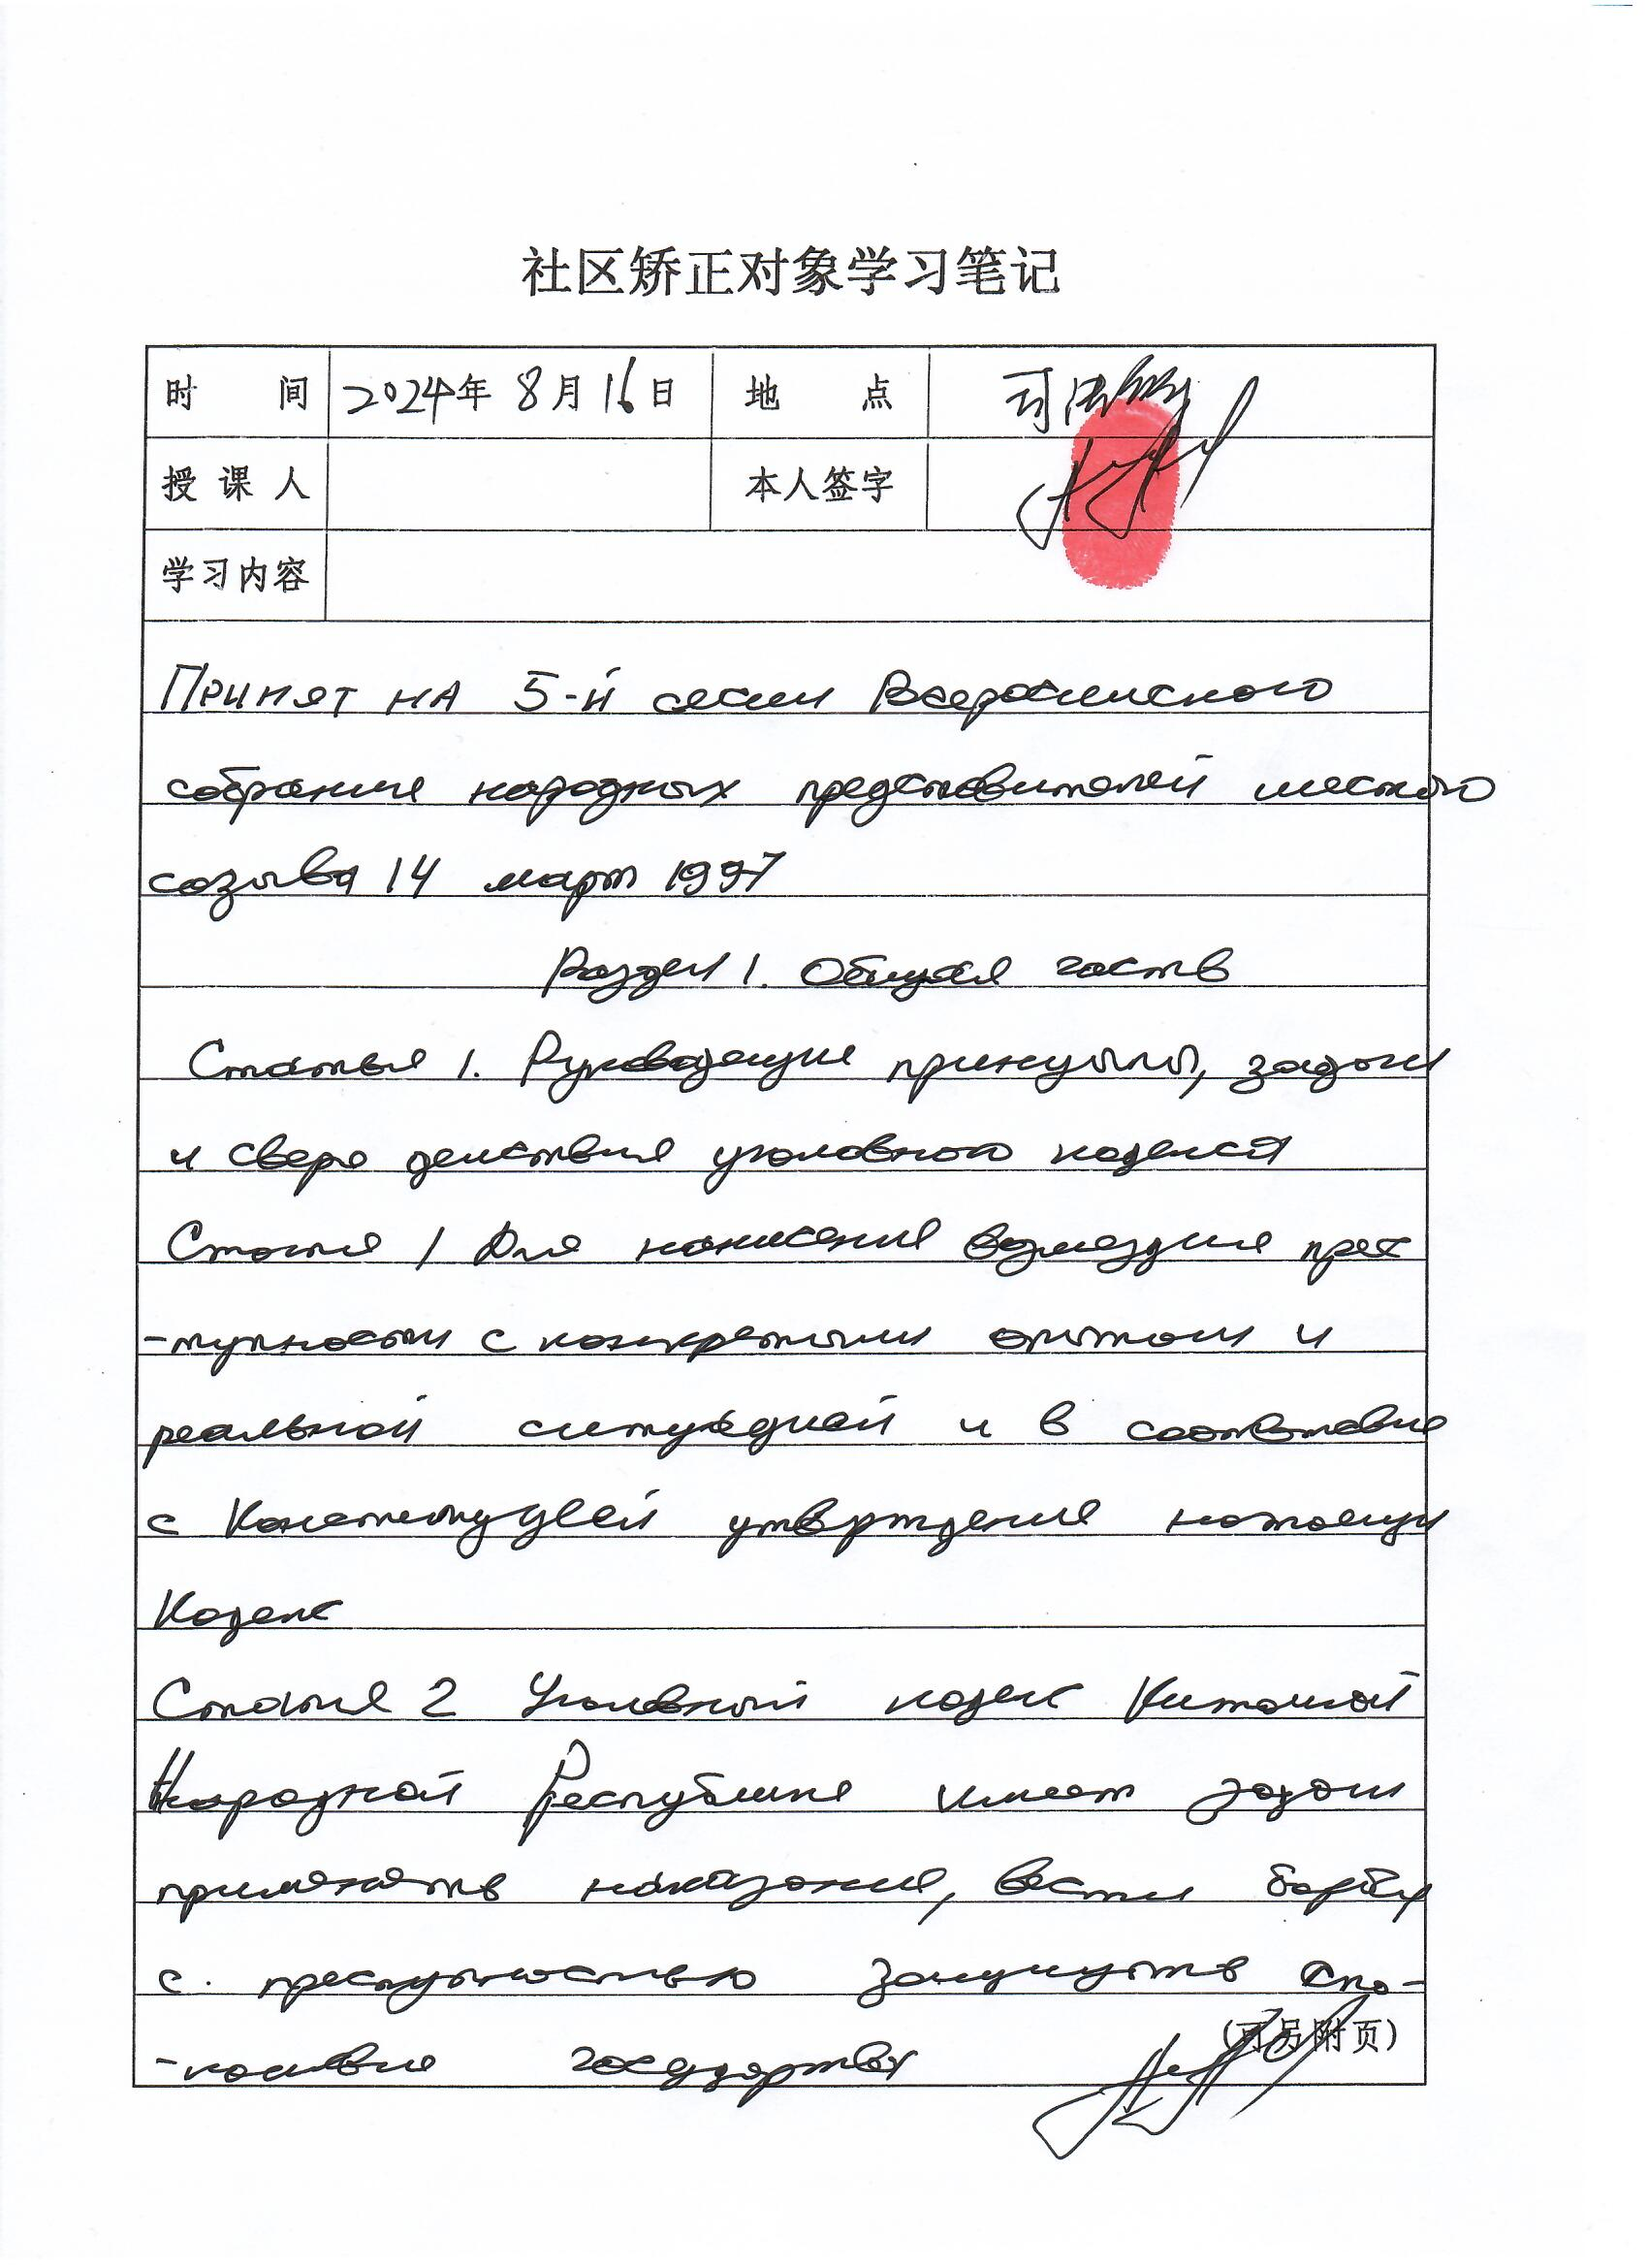 社区矫正对象学习笔记
时 间 2024年 8月 16日 地 点 司法所
授 课 人 本人签字
学习内容
Принят на 5-й сесии Всероссийского
собрание народных представителей шестого
созыва 14 март 1997
Раздел 1. Общая часть
Статья 1. Руководящие принципы, задачи
и сфера действия уголовного кодекса
Статья 1 Для нанисения возмездия прес
-тупности с конкретным опытом и
реальной ситуацией и в
с Конституцией утверждение
Кодекс
Статья 2 Уголовный кодекс Китаской
Народной Республики имеет задачи
применять наказания, вести борьбу
с преступностью защищать спо-
-койствие государства
(可另附页)